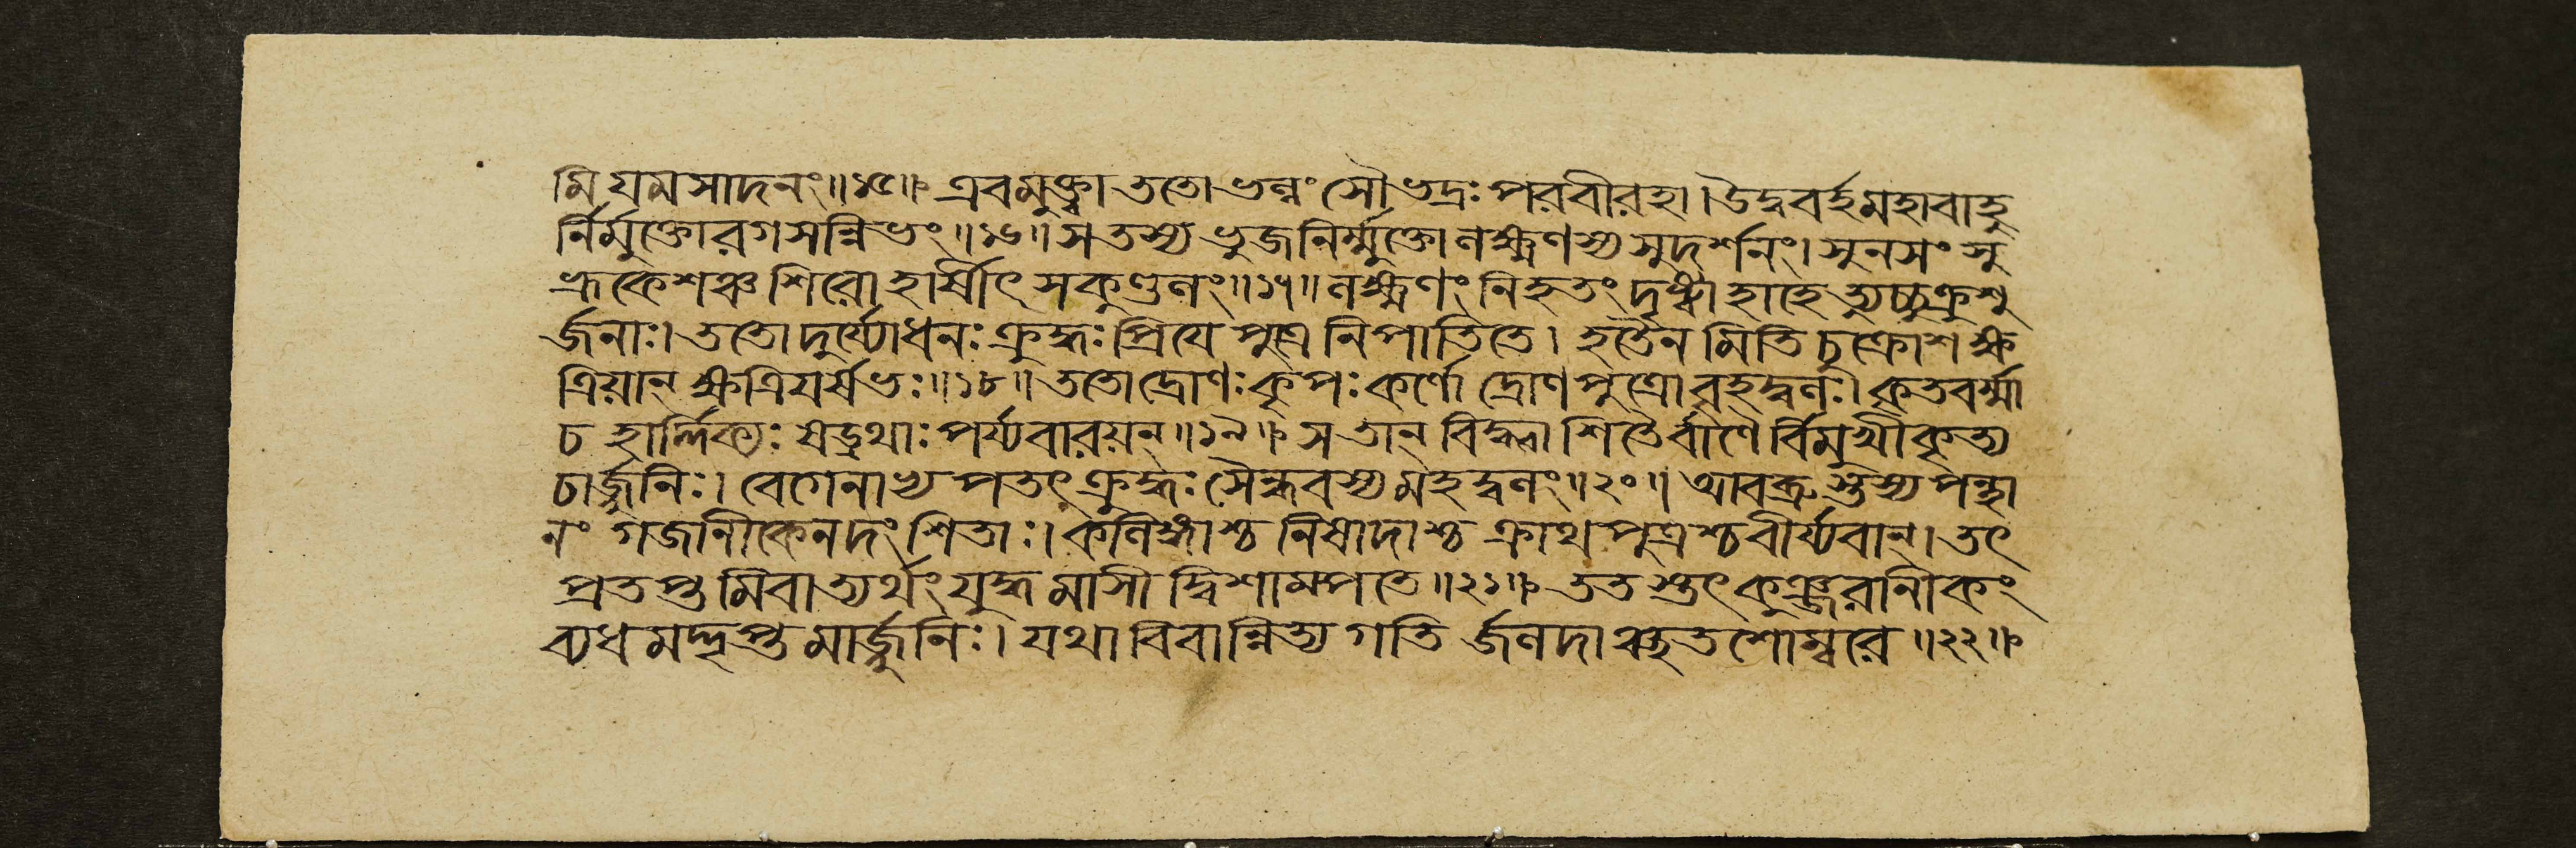 মি যমসাদনং॥১৫॥ এবমুক্ত্বা ততো ভল্লং সৌভদ্রঃ পরবীরহা। উদ্ববর্হ মহাবাহু
র্নির্মুক্তোরগসন্নিভং॥১৬॥ স তস্য ভুজনির্ম্মুক্তো লক্ষ্মণস্য সুদর্শনং। সুনসং সু
ভ্রুকেশঞ্চ শিরো হার্ষীৎ সকুণ্ডলং॥১৭॥ লক্ষ্মণং নিহতং দৃষ্ট্বা হাহেত্যুচ্চুক্রুশু
র্জনাঃ। ততো দুর্য্যোধনঃ ক্রুদ্ধঃ প্রিযে পুত্রে নিপাতিতে। হতৈনমিতি চুক্রোশ ক্ষ
ত্রিয়ান্ ক্ষত্রিযর্ষভঃ॥১৮॥ ততো দ্রোণঃ কৃপঃ কর্ণো দ্রোণপুত্রো বৃহদ্বলঃ। কৃতবর্ম্মা
চ হার্দিক্যঃ ষড্রথাঃ পর্য্যবারয়ন্॥১৯॥ স তান্ বিদ্ধা শিতৈর্বাণৈর্বিমুখীকৃত্য
চার্জ্জুনিঃ। বেগেনাভ্যপতৎ ক্রুদ্ধঃ সৈন্ধবস্য মহদ্বলং॥২০॥ আবব্রুস্তস্য পন্থা
নং গজানীকেন দংশিতাঃ। কলিঙ্গাশ্চ নিষাদাশ্চ ক্রাথপুত্রশ্চ বীর্য্যবান্। তৎ
প্রতপ্তমিবাত্যর্থং যুদ্ধমাসীদ্বিশাম্পতে॥২১॥ ততস্তৎ কুঞ্জরানীকং
ব্যধমদ্দৃপ্তমার্জ্জুনিঃ। যথা বিবান্নিত্যগতির্জলদাঞ্ছতশোম্বরে॥২২॥